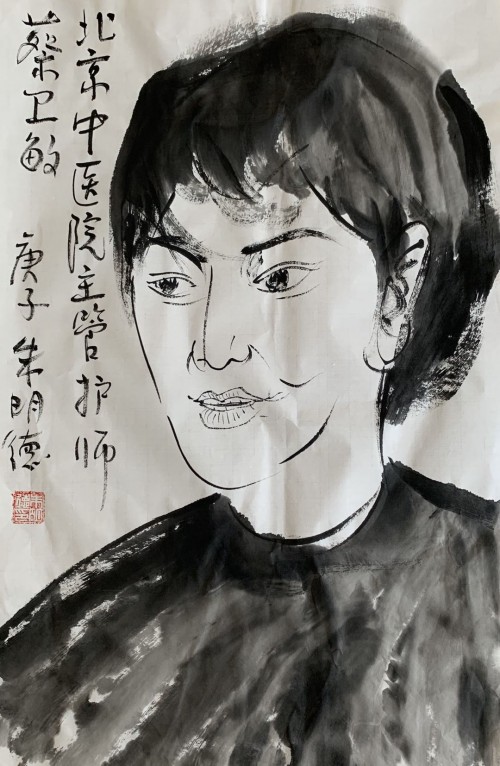 北京中医院主管护师
蔡卫敏
庚子 朱明德